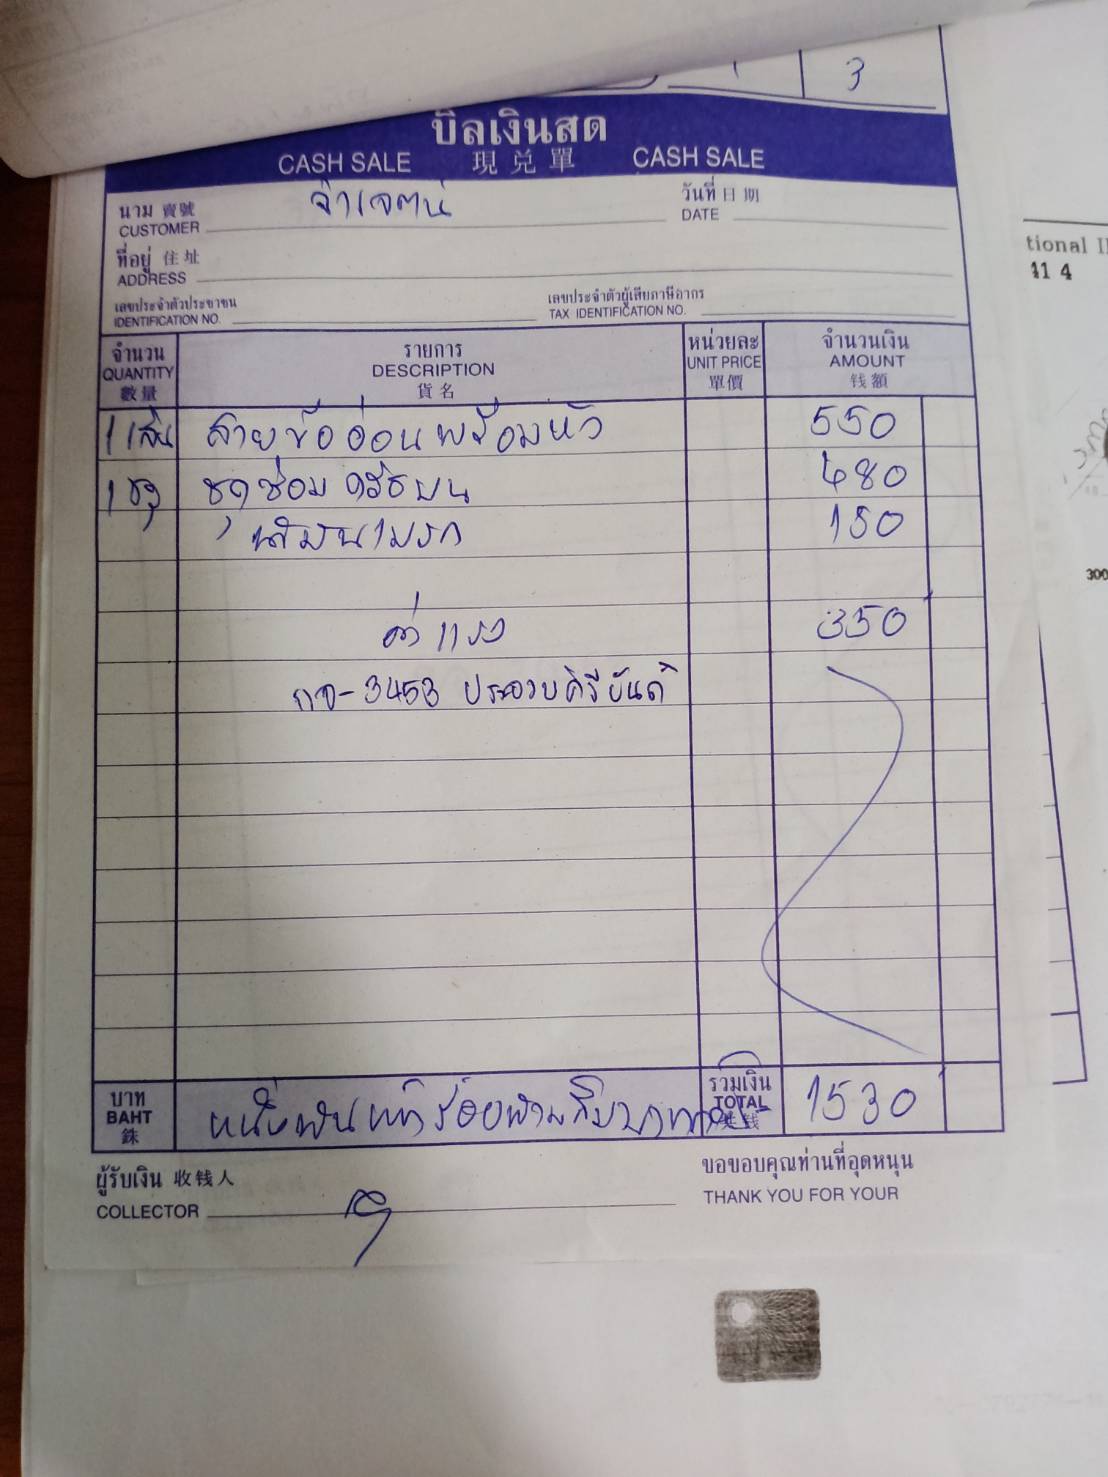 3
บิลเงินสด
CASH SALE 現兑單 CASH SALE
นาม 賣號 จ่าเจตน์ วันที่ 日期
CUSTOMER DATE
ที่อยู่ 住址
ADDRESS
เลขประจำตัวประชาชน เลขประจำตัวผู้เสียภาษีอากร
IDENTIFICATION NO. TAX IDENTIFICATION NO.
จำนวน รายการ หน่วยละ จำนวนเงิน
QUANTITY DESCRIPTION UNIT PRICE AMOUNT
數量 貨名 單價 銭額
1 เส้น สายข้ออ่อนพร้อมหัว 550
1 ชุด ชุดซ่อมครัชบน 480
น้ำมันเบรก 150
ค่าแรง 350
กจ-3453 ประจวบคีรีขันธ์
บาท หนึ่งพันห้าร้อยสามสิบบาท รวมเงิน 1530
BAHT TOTAL
銖
ผู้รับเงิน 收钱人 ขอขอบคุณท่านที่อุดหนุน
COLLECTOR THANK YOU FOR YOUR
tional
11 4
300